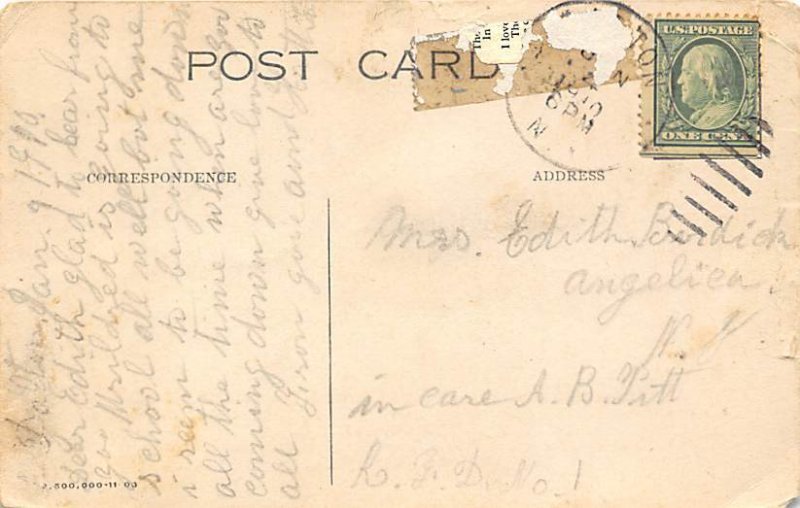 POST CARD
The
In
I love
The
TON
JAN
1910
6 PM
N.
U.S. POSTAGE
ONE CENT
CORRESPONDENCE
ADDRESS
Dalton Jan. 9 1910
Dear Edith glad to hear from
you Mildred is going to
school all well but me
i seem to be going down
all the time when are you
coming down give love to
all from your aunt
Mrs. Edith Burdick
Angelica.
N. Y
in care A. B. Pitt
R. F. D. No. 1